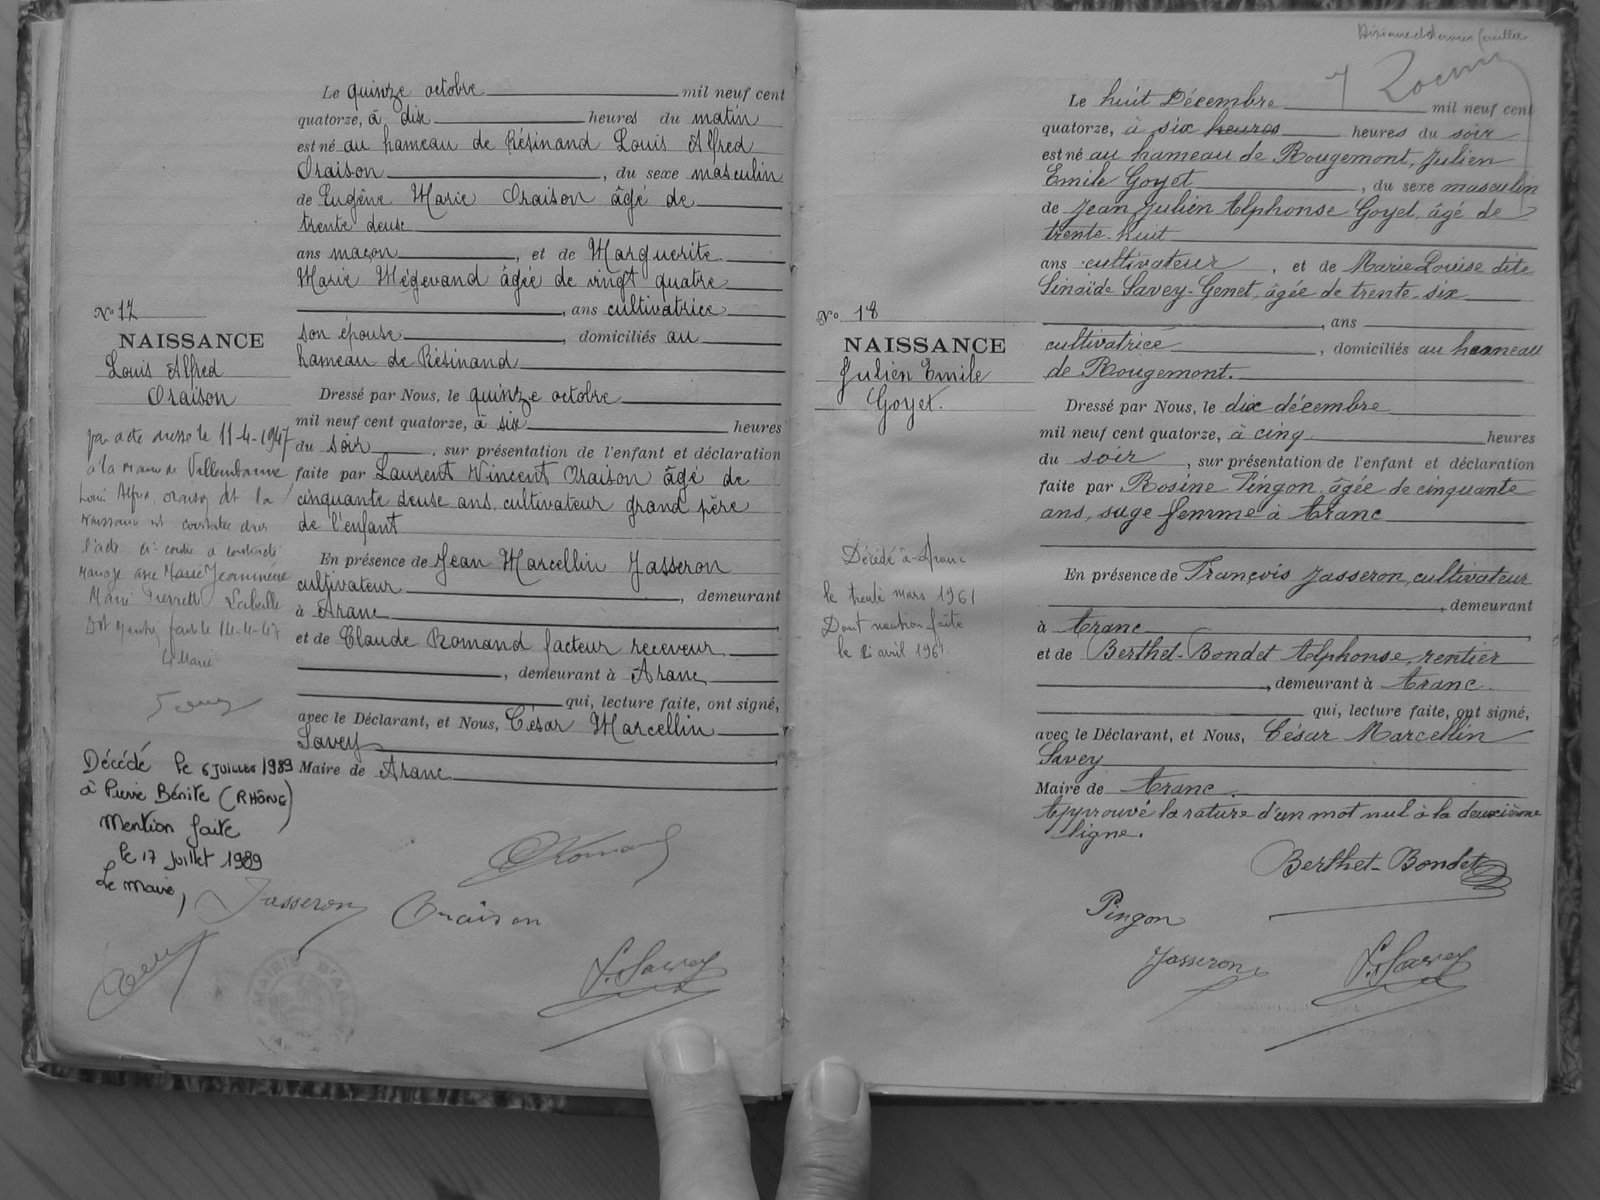 Le quinze octobre mil neuf cent
quatorze, à dix heures du matin
est né au hameau de Résinand Louis Alfred
Oraison, du sexe masculin
de Eugène Marie Oraison âgé de
trente deux
ans maçon, et de Marguerite
Marie Mégevand âgée de vingt quatre
, ans cultivatrice
son épouse, domiciliés au
hameau de Résinand
Dressé par Nous, le quinze octobre
mil neuf cent quatorze, à six heures
du soir, sur présentation de l'enfant et déclaration
faite par Laurent Vincent Oraison âgé de
cinquante deux ans, cultivateur grand père
de l'enfant
En présence de Jean Marcellin Jasseron
cultivateur, demeurant
à Aranc
et de Claude Romand facteur receveur
, demeurant à Aranc
qui, lecture faite, ont signé,
avec le Déclarant, et Nous, César Marcellin
Savey
Maire de Aranc
No 17
NAISSANCE
Louis Alfred
Oraison
par acte dressé le 11-4-1947
à la mairie de Villeurbanne
Louis Alfred Oraison dt la
naissance est constatée dans
l'acte ci-contre a contracté
mariage avec Marie Jeannine
Marie Pierrette Labeille
Dont mention faite le 14-4-47
Le Maire
Décédé le 6 juillet 1989
à Pierre Bénite (RHÔNE)
Mention faite
le 17 juillet 1989
Le Maire,
Romand
Jasseron
Oraison
MAIRIE D'A
Savey
Le huit Décembre mil neuf cent
quatorze, à six heures heures du soir
est né au hameau de Rougemont, Julien
Emile Goyet, du sexe masculin
de Jean Julien Alphonse Goyet, âgé de
trente-huit
ans cultivateur, et de Marie Louise dite
Sinaïde Savey-Genet, âgée de trente-six
, ans
cultivatrice, domiciliés au hameau
de Rougemont.
Dressé par Nous, le dix décembre
mil neuf cent quatorze, à cinq heures
du soir, sur présentation de l'enfant et déclaration
faite par Rosine Pingon, âgée de cinquante
ans, sage femme à Aranc
En présence de François Jasseron, cultivateur
, demeurant
à Aranc
et de Berthet-Bondet Alphonse, rentier
, demeurant à Aranc
qui, lecture faite, ont signé,
avec le Déclarant, et Nous, César Marcellin
Savey
Maire de Aranc.
Approuvé la rature d'un mot nul à la deuxième
ligne.
No 18
NAISSANCE
Julien Emile
Goyet.
Décédé à Aranc
le trente mars 1961
Dont mention faite
le avril 1961
Berthet-Bondet
Pingon
Jasseron
Savey